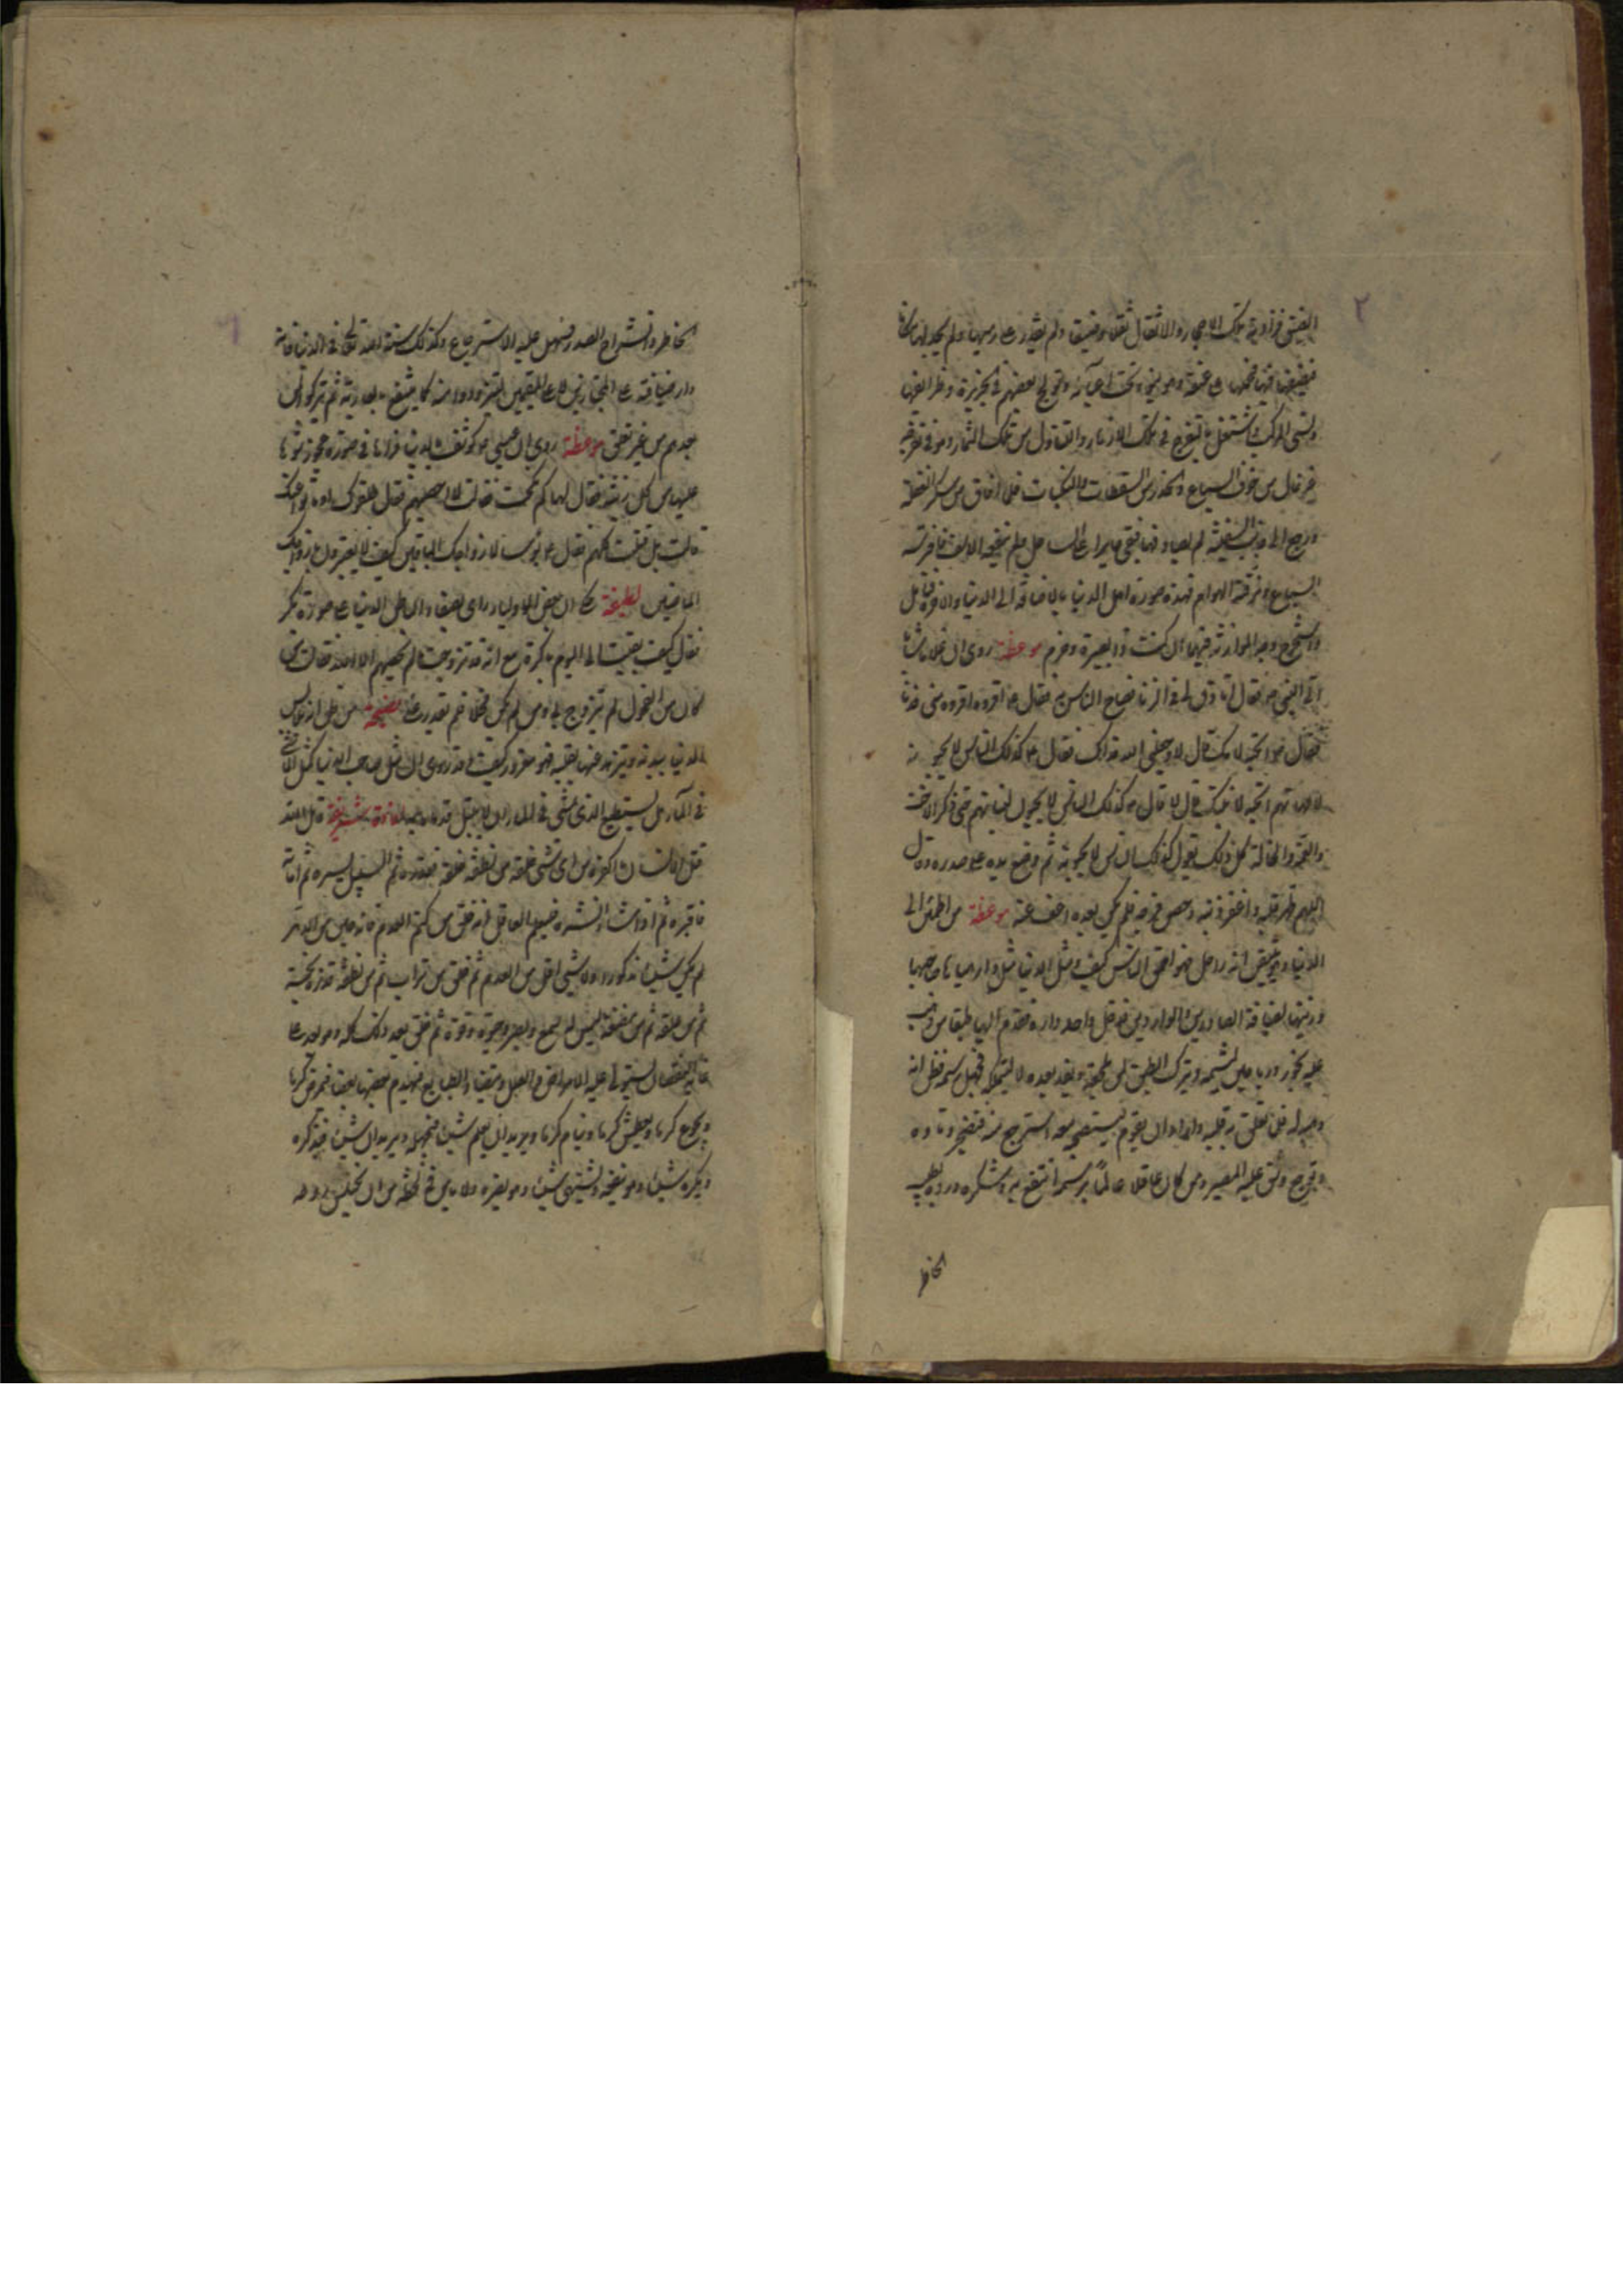 الضيق فزاده تلك الاحجار والاثقال ثقلا وضيقا ولم يقدر على رميها ولم يجد لها مكانا
فيضعها فيها فحملها على عنقه وهو ينوء تحت اعبائه وتولج بعضهم في الجزيرة ونظر الغرفها
ونسي المركب واشتغل بالتفرج في تلك الازهار والتناول من تلك الثمار وهو في تفرجه
غير خال من خوف السباع والحذر من السقطات والنكبات فلما افاق من سكر الغفلة
ورجع الى جانب السفينة لم يصادفها فبقي حايرا على الساحل فلم ينفعه الاسف فافترسته
السباع ومزقته الهوام فهذه صورة اهل الدنيا بالاضافة الى الدنيا والاخرة فتامل
واستخرج وجه الموازنة فيها ان كنت ذا بصيرة وحزم موعظة روى ان غلاما شابا
اتى النبي ص فقال اتاذن لي في الزنا فصاح الناس به فقال ع اقروه اقروه مني فدنا
فقال ص اتحبه لامك قال لا وجعلني الله فداك فقال ع كذلك الناس لا يحبونه
لامهاتهم اتحبه لابنتك قال لا قال ص كذلك الناس لا يحبونه لبناتهم حتى ذكر الاخت
والعمة والخالة كل ذلك يقول كذلك الناس لا يحبونه ثم وضع يده على صدره وقال
اللهم طهر قلبه واغفر ذنبه وحصن فرجه فلم يكن بعده اعف عنه موعظة من اطمئن الى
الدنيا وهو يتيقن انه راحل فهو احمق الناس كيف ومثل الدنيا مثل دار هياها صاحبها
وزينها لضيافة الصادرين والواردين فدخل واحد داره فقدم اليه طبقا من ذهب
عليه بخور ورياحين ليشمه ويترك الطبق لمن يلحقه ويفد بعده لا ليتملكه فجهل رسمه فظن انه
وهبه له فلما تعلق به قلبه واراد ان يقوم يستصحبه معه استرجع منه فتضجر وتاوه
وتجرح وشق عليه المصير ومن كان عاقلا عالما برسمه انتفع به وشكره ورده بطيب
الخاطر
الخاطر وانشراح الصدر فسهل عليه الاسترجاع وكذلك سنة الله تعالى في الدنيا فانه
دار ضيافة على المجتازين لا على المقيمين ليتزودوا منه كما ينتفع بالعارية ثم يتركوا لمن
بعدهم من غير تعلق موعظة روى ان عيسى ع كوشف بالدنيا فراها في صورة عجوز شوها
عليها من كل زينة فقال لها كم نكحت فقالت لا احصيهم فقال طلقوك او ماتوا عنك
قالت بل قتلت كلهم فقال ع بؤسا لازواجك الباقين كيف لا يعتبرون بازواجك
الماضين لطيفة حكى ان بعض الاولياء راى بعض اوائل الدنيا على صورة بكر
فقال كيف بقيت الى اليوم بكرا مع انه قد تزوجت ما لم يحصيهم الا الله فقالت من
كان من الفحول لم يتزوج بي ومن لم يكن فحلا فلم يقدر علي نصيحة من ظن انه يلابس
الدنيا ببدنه ويتزهد عنها بقلبه فهو مغرور كيف وقد روى ان مثل صاحب الدنيا كمثل الماشي
في الماء هل يستطيع الذي يمشي في الماء ان لا يبتل قدماه فائدة شريفة قال الله
قتل الانسان ما اكفره من اي شيء خلقه من نطفة خلقه فقدره ثم السبيل يسره ثم اماته
فاقبره ثم اذا شاء انشره فليعلم العاقل انه خلق من كتم العدم فانه حين من الدهر
لم يكن شيئا مذكورا ولا شيء اخس من العدم ثم خلق من تراب ثم من نطفة قذرة نجسة
ثم من علقة ثم من مضغة ليس له سمع وبصر وحيوة وقوة ثم خلق بعد ذلك كله وهو بعد على
غاية النقصان يستولي عليه الامراض والعلل ويتضاد الطبايع فيهدم بعضها بعضا فيمرض كرها
ويجوع كرها ويعطش كرها وينام كرها ويريد ان يعلم شيئا فيجهله ويريد ان شيئا فيذكره
ويكره شيئا وهو ينفعه ويشتهي شيئا وهو يضره ولا يامن في لحظة من ان يختلس روحه